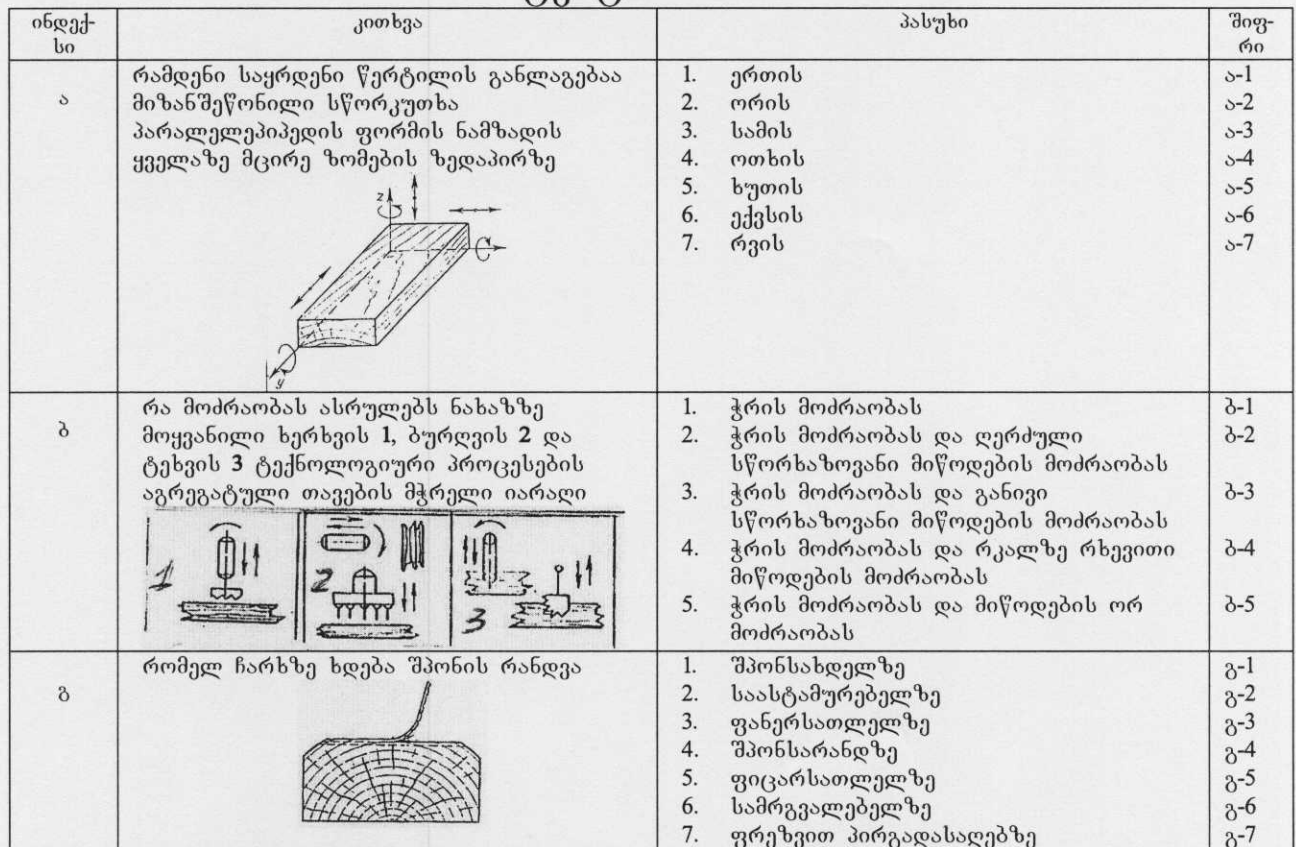 ინდექ-
სი
კითხვა
პასუხი
შიფ-
რი
ა
რამდენი საყრდენი წერტილის განლაგებაა
მიზანშეწონილი სწორკუთხა
პარალელეპიპედის ფორმის ნამზადის
ყველაზე მცირე ზომების ზედაპირზე
z
y
1. ერთის ა-1
2. ორის ა-2
3. სამის ა-3
4. ოთხის ა-4
5. ხუთის ა-5
6. ექვსის ა-6
7. რვის ა-7
ბ
რა მოძრაობას ასრულებს ნახაზზე
მოყვანილი ხერხვის 1, ბურღვის 2 და
ტეხვის 3 ტექნოლოგიური პროცესების
აგრეგატული თავების მჭრელი იარაღი
1
2
3
1. ჭრის მოძრაობას ბ-1
2. ჭრის მოძრაობას და ღერძული ბ-2
სწორხაზოვანი მიწოდების მოძრაობას
3. ჭრის მოძრაობას და განივი ბ-3
სწორხაზოვანი მიწოდების მოძრაობას
4. ჭრის მოძრაობას და რკალზე რხევითი ბ-4
მიწოდების მოძრაობას
5. ჭრის მოძრაობას და მიწოდების ორ ბ-5
მოძრაობას
გ
რომელ ჩარხზე ხდება შპონის რანდვა
1. შპონსახდელზე გ-1
2. საასტამურებელზე გ-2
3. ფანერსათლელზე გ-3
4. შპონსარანდზე გ-4
5. ფიცარსათლელზე გ-5
6. სამრგვალებელზე გ-6
7. ფრეზვით პირგადასაღებზე გ-7